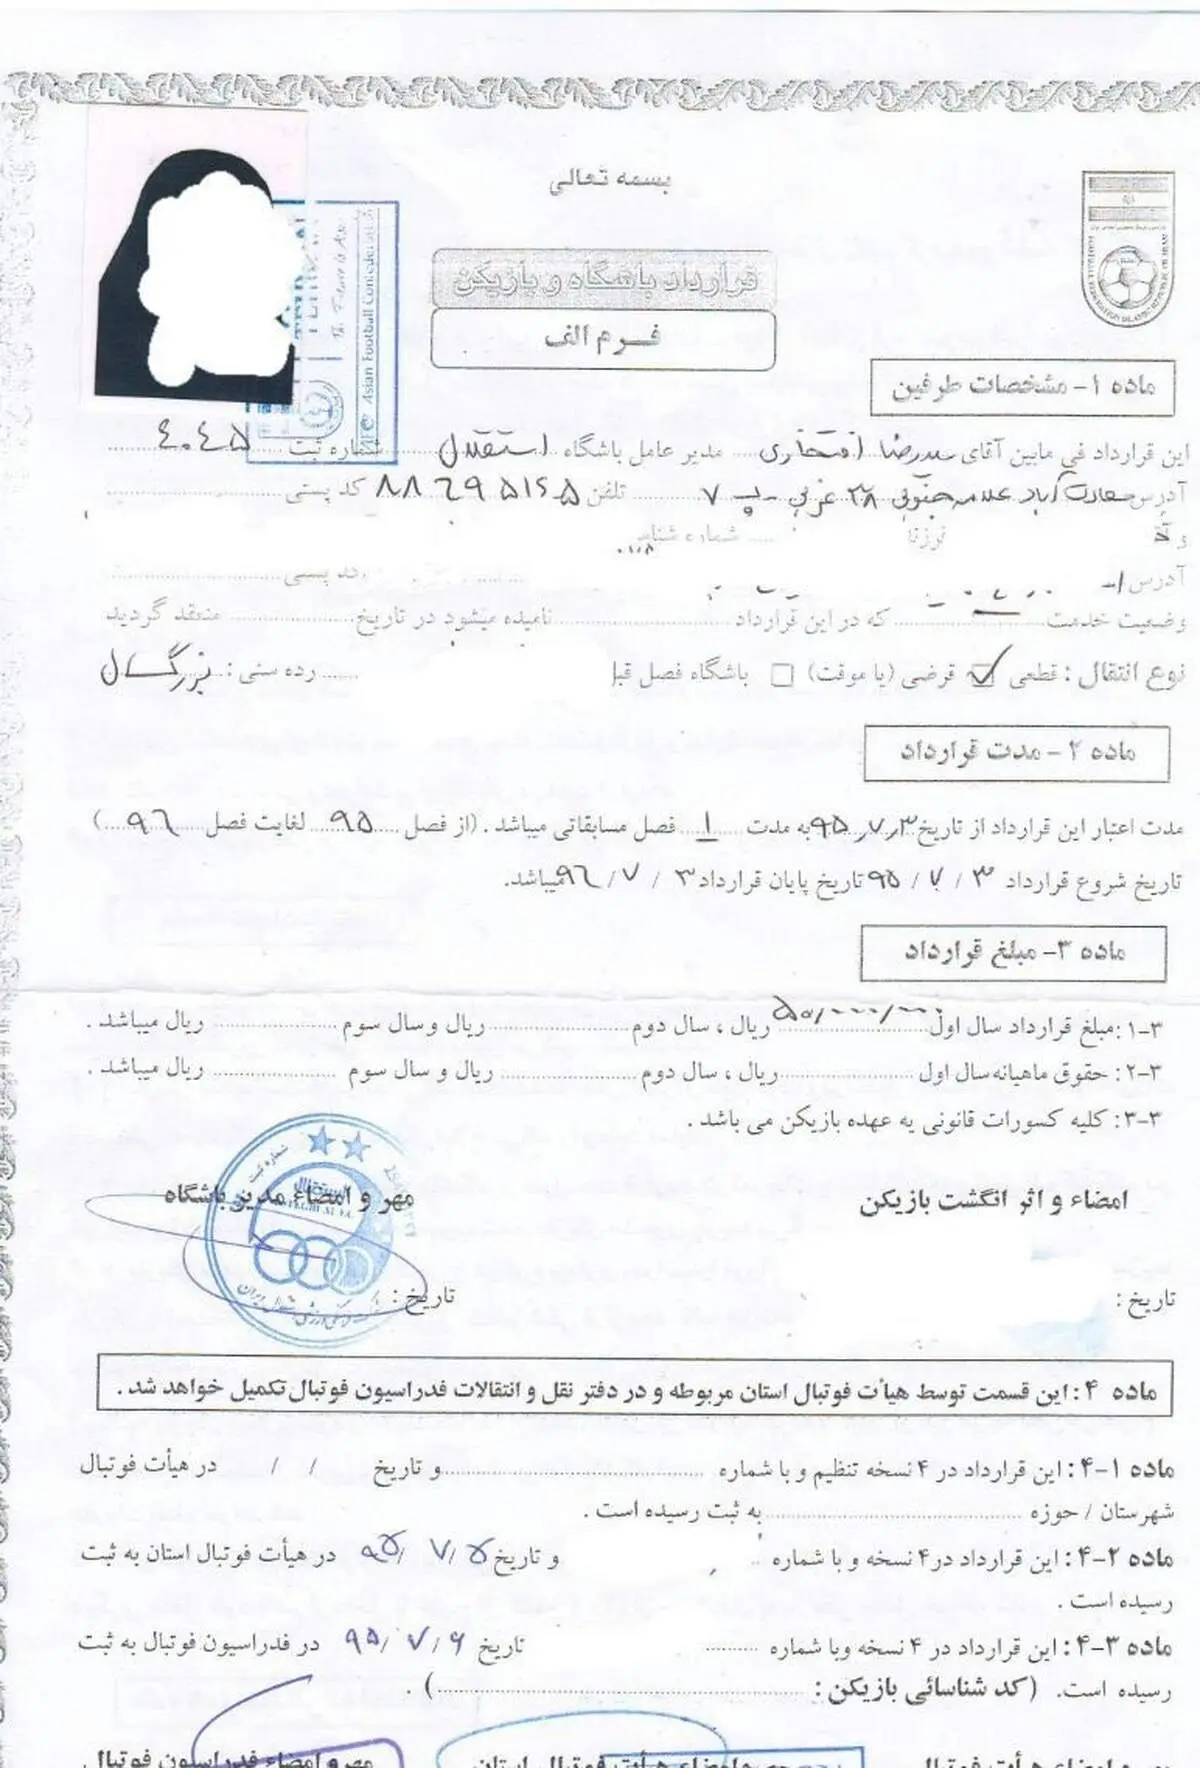 بسمه تعالی
قرارداد باشگاه و بازیکن
فرم الف
Asian Football Confederation
ماده ۱- مشخصات طرفین
این قرارداد فی مابین آقای سیدرضا افتخاری مدیر عامل باشگاه استقلال شماره ثبت ۴۰۴۵
آدرس سعادت آباد علامه جنوبی ۳۸ غربی پ ۷ تلفن ۸۸۶۹۵۱۶۵ کد پستی
و شماره شناس
آدرس کد پستی
وضعیت خدمت که در این قرارداد نامیده میشود در تاریخ منعقد گردید
نوع انتقال : قطعی قرضی (یا موقت) باشگاه فصل قبل رده سنی : بزرگسال
ماده ۲ - مدت قرارداد
مدت اعتبار این قرارداد از تاریخ ۹۵/۷/۳ به مدت ۱ فصل مسابقاتی میباشد . (از فصل ۹۵ لغایت فصل ۹۶ )
تاریخ شروع قرارداد ۳ / ۷ / ۹۵ تاریخ پایان قرارداد ۳ / ۷ / ۹۶ میباشد.
ماده ۳- مبلغ قرارداد
۳-۱: مبلغ قرارداد سال اول ۵۰/۰۰۰/۰۰۰ ریال ، سال دوم ریال و سال سوم ریال میباشد .
۳-۲: حقوق ماهیانه سال اول ریال ، سال دوم ریال و سال سوم ریال میباشد .
۳-۳: کلیه کسورات قانونی به عهده بازیکن می باشد .
امضاء و اثر انگشت بازیکن مهر و امضاء مدیر باشگاه
تاریخ : تاریخ :
ماده ۴ : این قسمت توسط هیأت فوتبال استان مربوطه و در دفتر نقل و انتقالات فدراسیون فوتبال تکمیل خواهد شد .
ماده ۱-۴ : این قرارداد در ۴ نسخه تنظیم و با شماره و تاریخ / / در هیأت فوتبال
شهرستان / حوزه به ثبت رسیده است .
ماده ۲-۴ : این قرارداد در ۴ نسخه و با شماره و تاریخ ۵ / ۷ / ۹۵ در هیأت فوتبال استان به ثبت
رسیده است .
ماده ۳-۴ : این قرارداد در ۴ نسخه وبا شماره تاریخ ۶ / ۷ / ۹۵ در فدراسیون فوتبال به ثبت
رسیده است. (کد شناسائی بازیکن : ) .
مهر و امضاء هیأت فوتبال مهر و امضاء هیأت فوتبال استان مهر و امضاء فدراسیون فوتبال